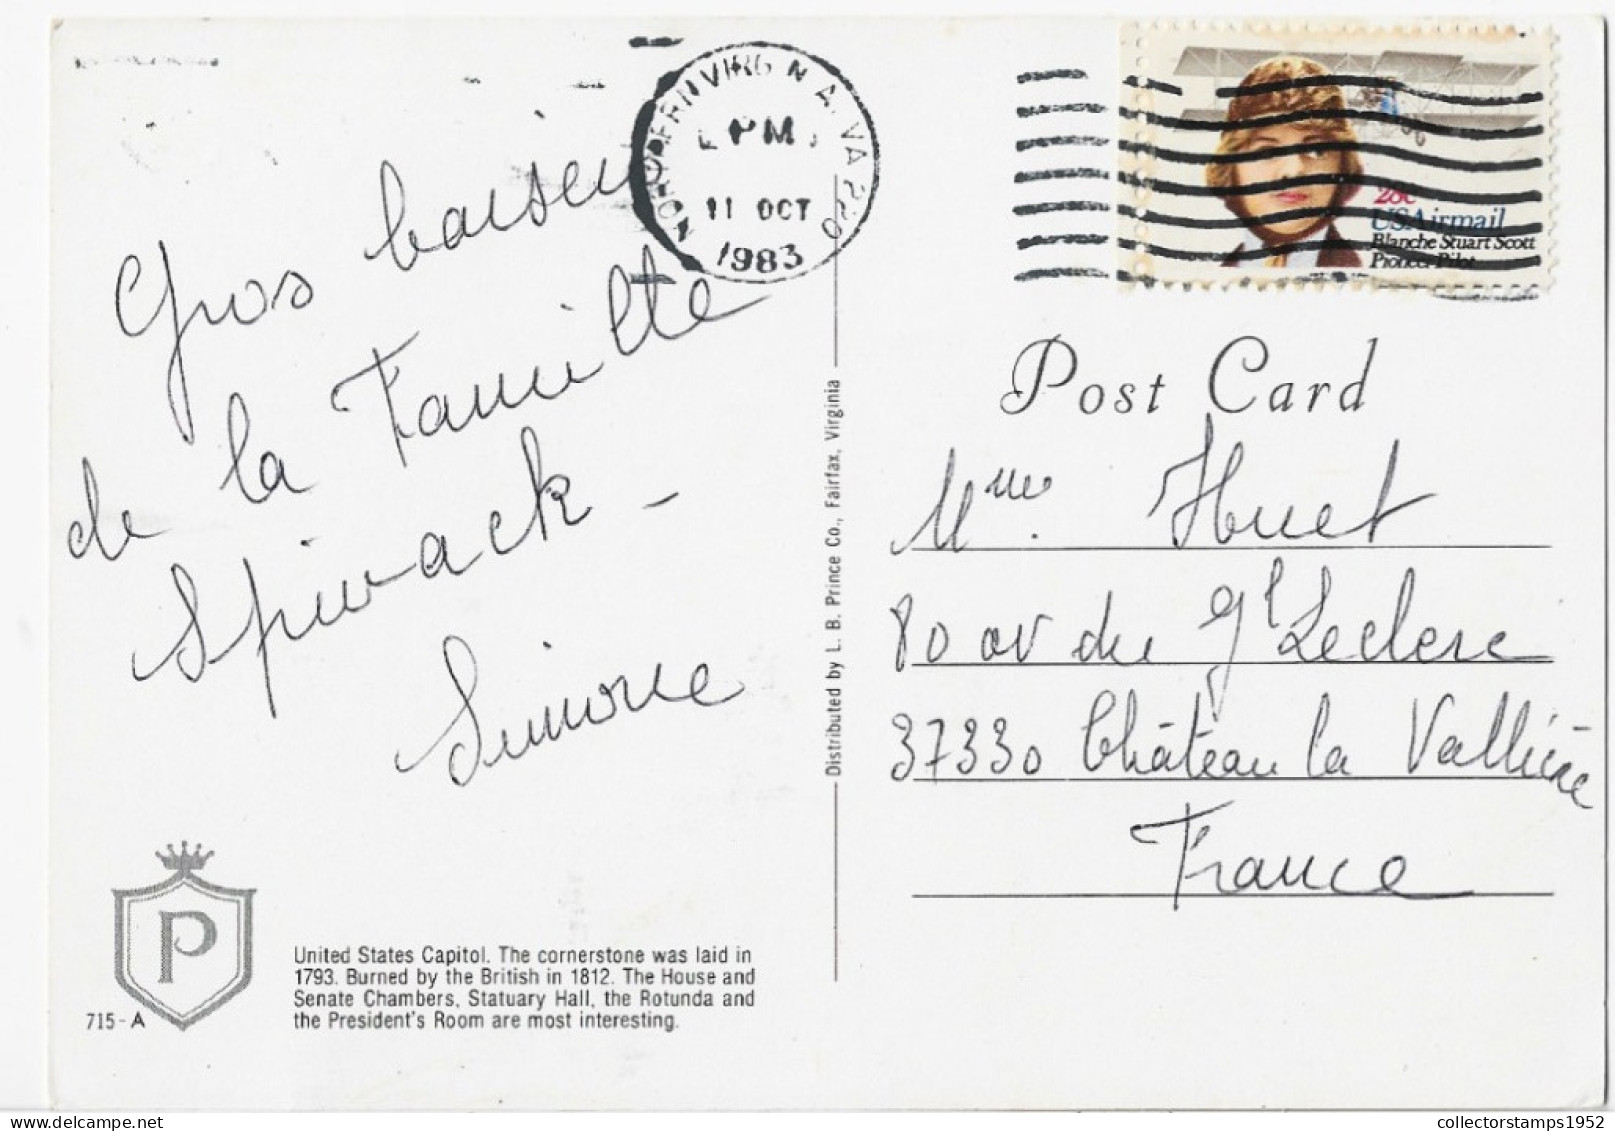 Gros baisers
de la Famille
Spivack -
Simone
715-A
P
United States Capitol. The cornerstone was laid in
1793. Burned by the British in 1812. The House and
Senate Chambers, Statuary Hall, the Rotunda and
the President's Room are most interesting.
Distributed by L. B. Prince Co., Fairfax, Virginia
VA 220
PM
11 OCT
1983
28c
USAirmail
Blanche Stuart Scott
Pioneer Pilot
Post Card
Mme. Huet
80 av du Gl Leclerc
37330 Château la Vallière
France
collectorstamps1952